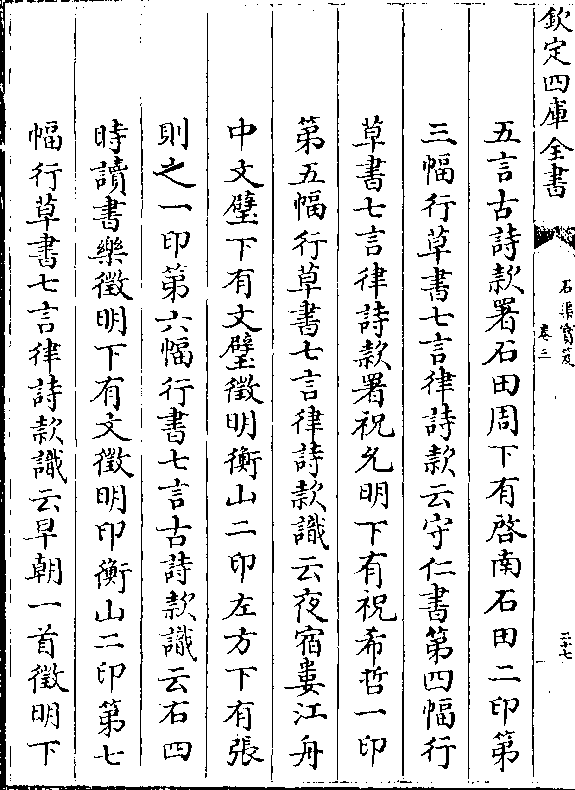 欽定四庫全書
石渠寶笈
卷三
二十七
五言古詩款署石田周下有啓南石田二印第
三幅行草書七言律詩款云守仁書第四幅行
草書七言律詩款署祝允明下有祝希哲一印
第五幅行草書七言律詩款識云夜宿婁江舟
中文璧下有文璧徵明衡山二印左方下有張
則之一印第六幅行書七言古詩款識云石四
時讀書樂徵明下有文徵明印衡山二印第七
幅行草書七言律詩款識云早朝一首徵明下